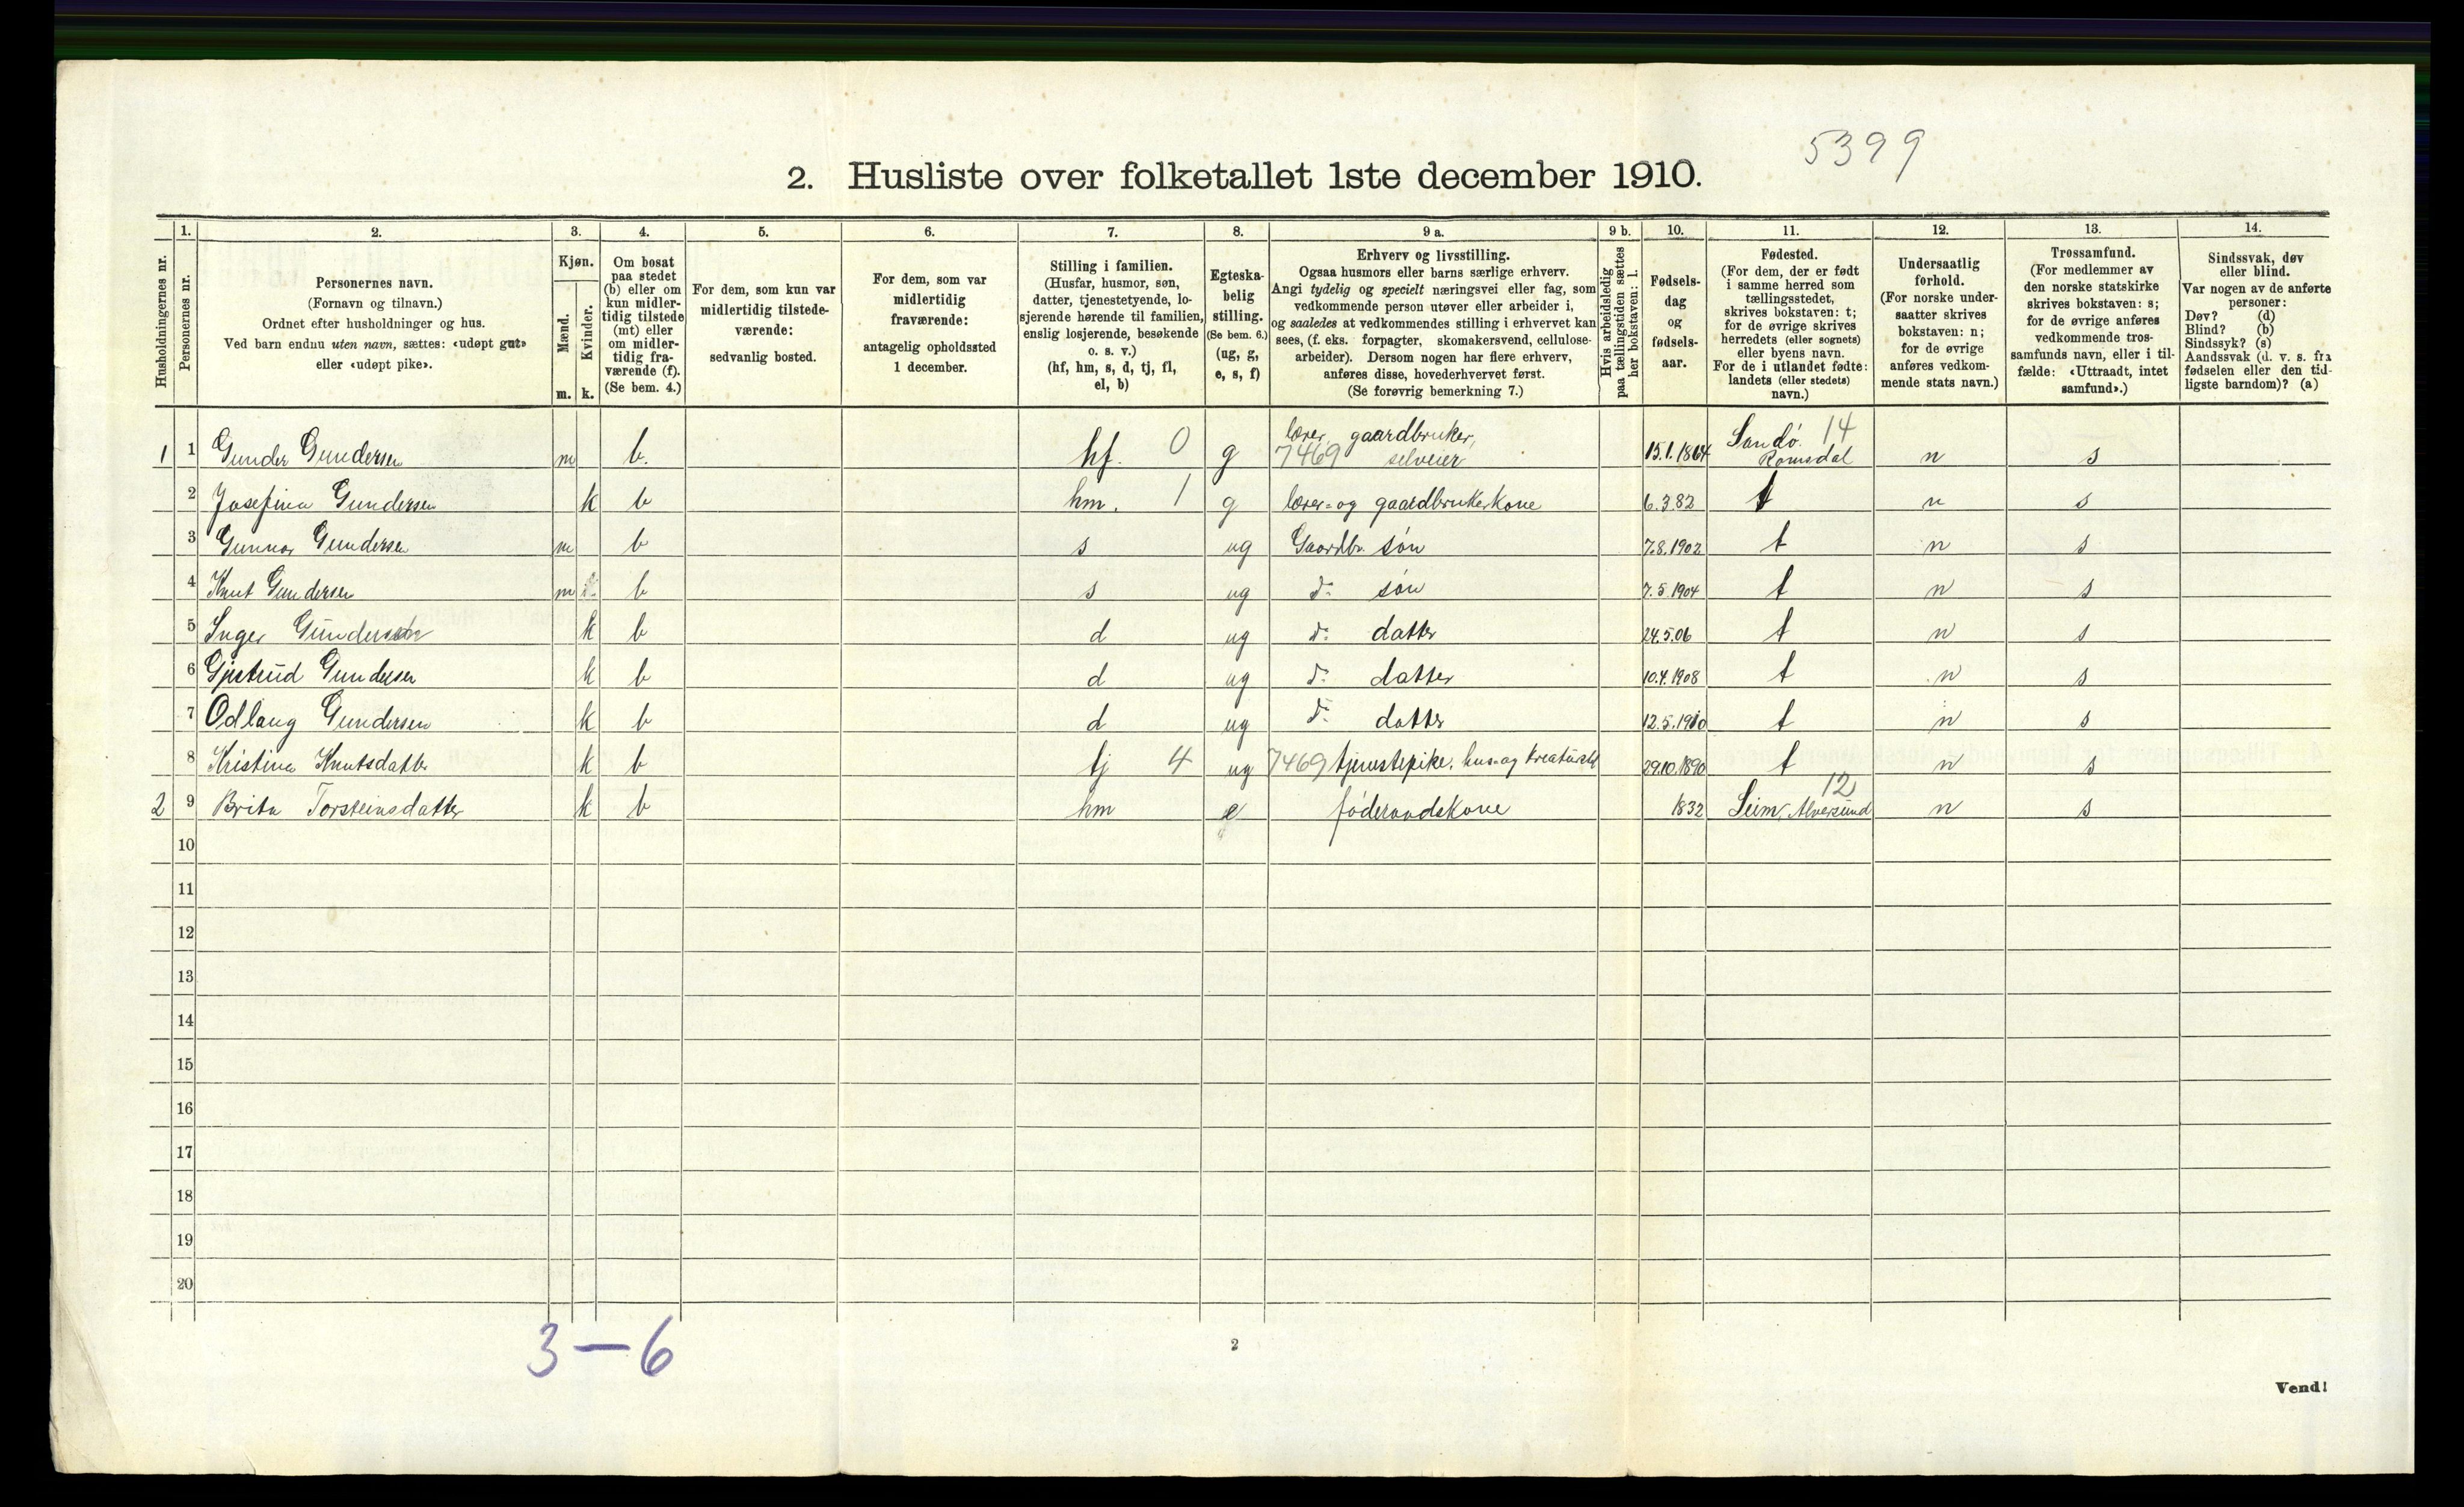 5399
2. Husliste over folketallet 1ste december 1910.
Husholdningernes nr.
1.
Personernes nr.
2.
Personernes navn.
(Fornavn og tilnavn.)
Ordnet efter husholdninger og hus.
Ved barn endnu uten navn, sættes: «udøpt gut»
eller «udøpt pike».
3.
Kjøn.
Mænd.
Kvinder.
m. k.
4.
Om bosat
paa stedet
(b) eller om
kun midler-
tidig tilstede
(mt) eller
om midler-
tidig fra-
værende (f).
(Se bem. 4.)
5.
For dem, som kun var
midlertidig tilstede-
værende:
sedvanlig bosted.
6.
For dem, som var
midlertidig
fraværende:
antagelig opholdssted
1 december.
7.
Stilling i familien.
(Husfar, husmor, søn,
datter, tjenestetyende, lo-
sjerende hørende til familien,
enslig losjerende, besøkende
o. s. v.)
(hf, hm, s, d, tj, fl,
el, b)
8.
Egteska-
belig
stilling.
(Se bem. 6.)
(ug, g,
e, s, f)
9 a.
Erhverv og livsstilling.
Ogsaa husmors eller barns særlige erhverv.
Angi tydelig og specielt næringsvei eller fag, som
vedkommende person utøver eller arbeider i,
og saaledes at vedkommendes stilling i erhvervet kan
sees, (f. eks. forpagter, skomakersvend, cellulose-
arbeider). Dersom nogen har flere erhverv,
anføres disse, hovederhvervet først.
(Se forøvrig bemerkning 7.)
9 b.
Hvis arbeidsledig
paa tællingstiden sættes
her bokstaven: l.
10.
Fødsels-
dag
og
fødsels-
aar.
11.
Fødested.
(For dem, der er født
i samme herred som
tællingsstedet,
skrives bokstaven: t;
for de øvrige skrives
herredets (eller sognets)
eller byens navn.
For de i utlandet fødte:
landets (eller stedets)
navn.)
12.
Undersaatlig
forhold.
(For norske under-
saatter skrives
bokstaven: n;
for de øvrige
anføres vedkom-
mende stats navn.)
13.
Trossamfund.
(For medlemmer av
den norske statskirke
skrives bokstaven: s;
for de øvrige anføres
vedkommende tros-
samfunds navn, eller i til-
fælde: «Uttraadt, intet
samfund».)
14.
Sindssvak, døv
eller blind.
Var nogen av de anførte
personer:
Døv? (d)
Blind? (b)
Sindssyk? (s)
Aandssvak (d. v. s. fra
fødselen eller den tid-
ligste barndom)? (a)
1 1 Gunder Gundersen m b. hf. 0 g lærer, gaardbruker, 7469 selveier 15.1.1864 Sandö. 14 Romsdal n s
2 Josefina Gundersen k b hm. 1 g lærer- og gaardbrukerkone 6.3.82 t n s
3 Gunnar Gundersen m b s ug Gaardbr. søn 7.8.1902 t n s
4 Knut Gundersen m b s ug do søn 7.5.1904 t n s
5 Inger Gundersen k b d ug do datter 24.5.06 t n s
6 Gjertrud Gundersen k b d ug do datter 10.4.1908 t n s
7 Odlaug Gundersen k b d ug do datter 12.5.1910 t n s
8 Kristina Knutsdatter k b tj 4 ug 7469 tjenestepike, hus- og kreaturstel 29.10.1890 t n s
2 9 Brita Torsteinsdatter k b hm e föderaadskone 1832 12 Seim, Alversund n s
10
11
12
13
14
15
16
17
18
19
20
3-6
2
Vend!